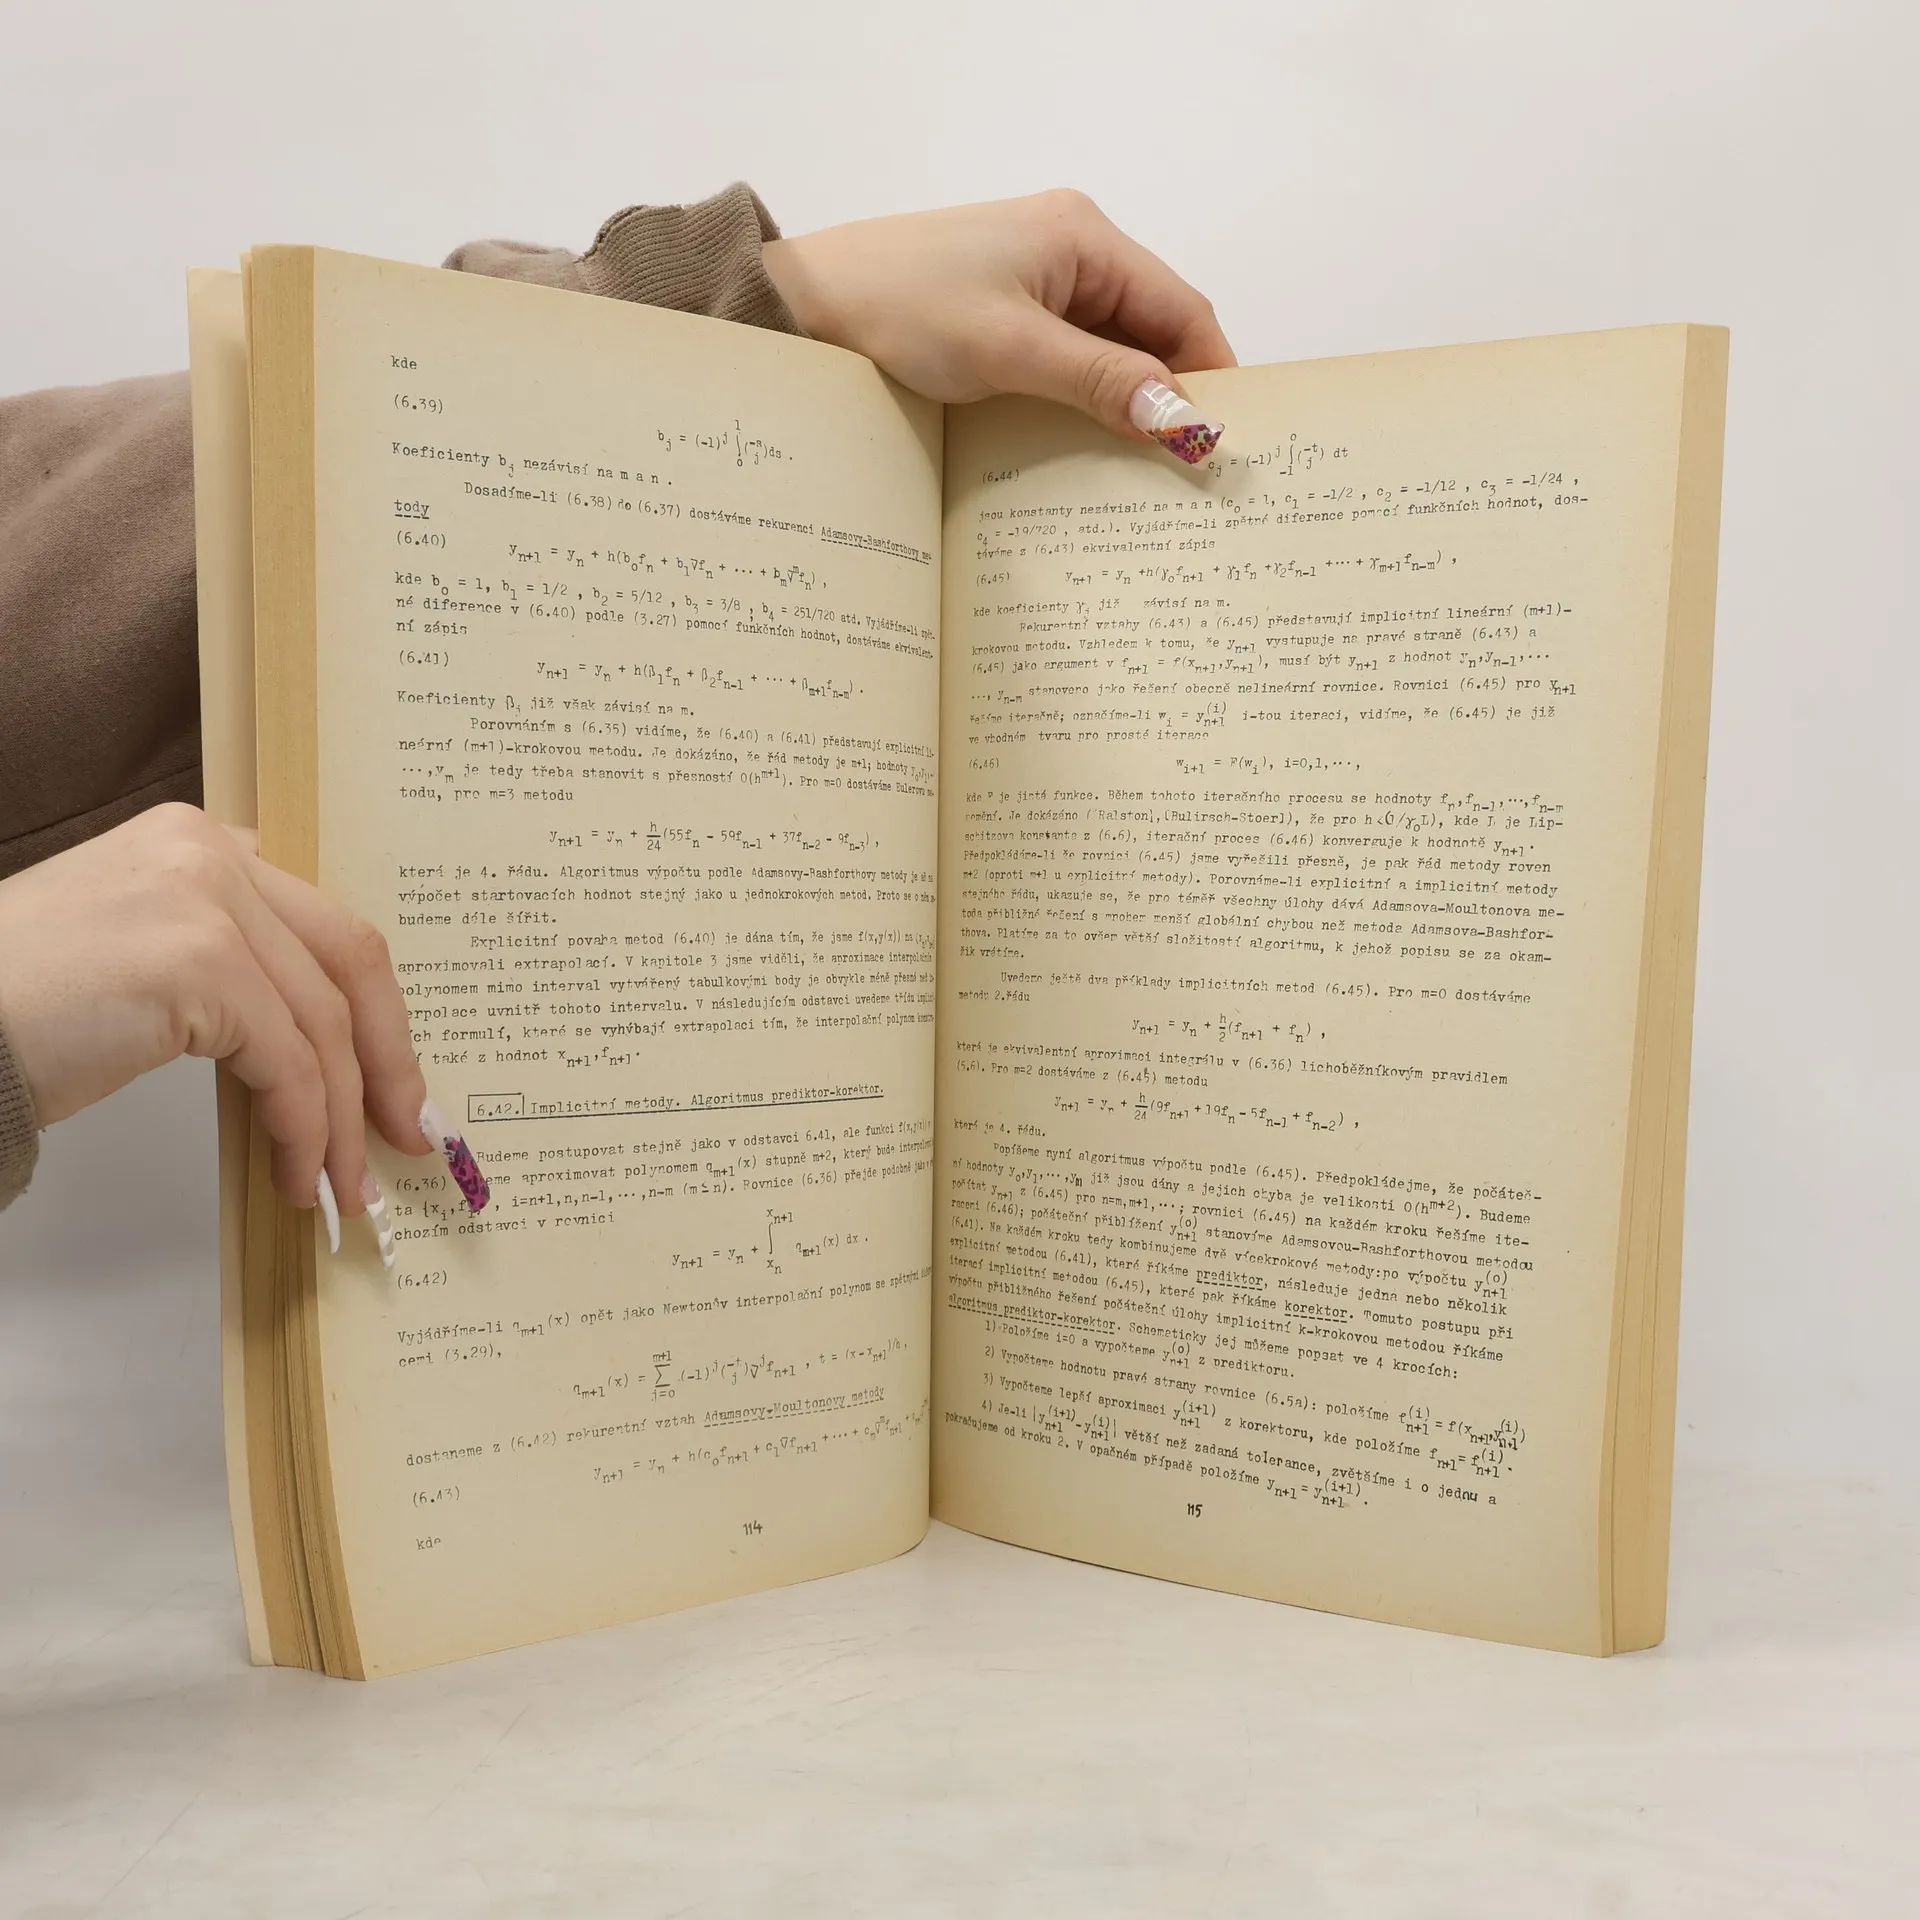 kde
(6.39)
b_j = (-1)^j ∫_0^1 (-s j)ds .
Koeficienty b_j nezávisí na m a n .
Dosadíme-li (6.38) do (6.37) dostáváme rekurenci Adamsovy-Bashforthovy me-
tody
(6.40) y_n+1 = y_n + h(b_0f_n + b_1∇f_n + ... + b_m∇^mf_n) ,
kde b_0 = 1, b_1 = 1/2 , b_2 = 5/12 , b_3 = 3/8 , b_4 = 251/720 atd. Vyjádříme-li zpět-
né diference v (6.40) podle (3.27) pomocí funkčních hodnot, dostáváme ekvivalent-
ní zápis
(6.41) y_n+1 = y_n + h(β_1f_n + β_2f_n-1 + ... + β_m+1f_n-m) .
Koeficienty β_j již však závisí na m.
Porovnáním s (6.35) vidíme, že (6.40) a (6.41) představují explicitní li-
neární (m+1)-krokovou metodu. Je dokázáno, že řád metody je m+1; hodnoty y_0,y_1,...
...,y_m je tedy třeba stanovit s přesností O(h^m+1). Pro m=0 dostáváme Eulerovu me-
todu, pro m=3 metodu
y_n+1 = y_n + h/24(55f_n - 59f_n-1 + 37f_n-2 - 9f_n-3) ,
která je 4. řádu. Algoritmus výpočtu podle Adamsovy-Bashforthovy metody je až na
výpočet startovacích hodnot stejný jako u jednokrokových metod. Proto se o něm
budeme dále šířit.
Explicitní povaha metod (6.40) je dána tím, že jsme f(x,y(x)) na
aproximovali extrapolací. V kapitole 3 jsme viděli, že aproximace interpolačním
polynomem mimo interval vytvářený tabulkovými body je obvykle méně přesná než
erpolace uvnitř tohoto intervalu. V následujícím odstavci uvedeme třídu
ích formulí, které se vyhýbají extrapolaci tím, že interpolační polynom
í také z hodnot x_n+1,f_n+1.
6.42. Implicitní metody. Algoritmus prediktor-korektor.
Budeme postupovat stejně jako v odstavci 6.41, ale funkci f(x,y(x))
(6.36) eme aproximovat polynomem q_m+1(x) stupně m+2, který bude
ta {x_i,f , i=n+1,n,n-1,...,n-m (m≤n). Rovnice (6.36) přejde podobně jako
chozím odstavci v rovnici
(6.42) y_n+1 = y_n + ∫_x_n^x_n+1 q_m+1(x) dx .
Vyjádříme-li q_m+1(x) opět jako Newtonův interpolační polynom se zpětnými
cemi (3.29),
q_m+1(x) = Σ_j=0^m+1 (-1)^j(-t j)∇^jf_n+1 , t = (x-x_n+1)/h ,
dostaneme z (6.42) rekurentní vztah Adamsovy-Moultonovy metody
(6.43) y_n+1 = y_n + h(c_0f_n+1 + c_1∇f_n+1 + ... + c_m∇^mf_n+1 +
kde
114
(6.44) c_j = (-1)^j ∫_-1^0 (-t j) dt
jsou konstanty nezávislé na m a n (c_0 = 1, c_1 = -1/2 , c_2 = -1/12 , c_3 = -1/24 ,
c_4 = -19/720 , atd.). Vyjádříme-li zpětné diference pomocí funkčních hodnot, dos-
táváme z (6.43) ekvivalentní zápis
(6.45) y_n+1 = y_n +h(γ_0f_n+1 + γ_1f_n +γ_2f_n-1 +...+ γ_m+1f_n-m) ,
kde koeficienty γ_j již závisí na m.
Rekurentní vztahy (6.43) a (6.45) představují implicitní lineární (m+1)-
krokovou metodu. Vzhledem k tomu, že y_n+1 vystupuje na pravé straně (6.43) a
(6.45) jako argument v f_n+1 = f(x_n+1,y_n+1), musí být y_n+1 z hodnot y_n,y_n-1,...
...,y_n-m stanoveno jako řešení obecně nelineární rovnice. Rovnici (6.45) pro y_n+1
řešíme iteračně; označíme-li w_i = y_n+1^(i) i-tou iteraci, vidíme, že (6.45) je již
ve vhodném tvaru pro prosté iterace
(6.46) w_i+1 = F(w_i), i=0,1,...,
kde F je jistá funkce. Během tohoto iteračního procesu se hodnoty f_n,f_n-1,...,f_n-m
nemění. Je dokázáno ([Ralston],[Bulirsch-Stoer]), že pro h<(1/γ_0L), kde L je Lip-
schitzova konstanta z (6.6), iterační proces (6.46) konverguje k hodnotě y_n+1.
Předpokládáme-li že rovnici (6.45) jsme vyřešili přesně, je pak řád metody roven
m+2 (oproti m+1 u explicitní metody). Porovnáme-li explicitní a implicitní metody
stejného řádu, ukazuje se, že pro téměř všechny úlohy dává Adamsova-Moultonova me-
toda přibližné řešení s mnohem menší globální chybou než metoda Adamsova-Bashfor-
thova. Platíme za to ovšem větší složitostí algoritmu, k jehož popisu se za okam-
žik vrátíme.
Uvedeme ještě dva příklady implicitních metod (6.45). Pro m=0 dostáváme
metodu 2.řádu
y_n+1 = y_n + h/2(f_n+1 + f_n) ,
která je ekvivalentní aproximaci integrálu v (6.36) lichoběžníkovým pravidlem
(5.6). Pro m=2 dostáváme z (6.45) metodu
y_n+1 = y_n + h/24(9f_n+1 + 19f_n - 5f_n-1 + f_n-2) ,
která je 4. řádu.
Popíšeme nyní algoritmus výpočtu podle (6.45). Předpokládejme, že počáteč-
ní hodnoty y_0,y_1,...,y_m již jsou dány a jejich chyba je velikosti O(h^m+2). Budeme
počítat y_n+1 z (6.45) pro n=m,m+1,...; rovnici (6.45) na každém kroku řešíme ite-
racemi (6.46); počáteční přiblížení y_n+1^(0) stanovíme Adamsovou-Bashforthovou metodou
(6.41). Na každém kroku tedy kombinujeme dvě vícekrokové metody:po výpočtu y_n+1^(0)
explicitní metodou (6.41), které říkáme prediktor, následuje jedna nebo několik
iterací implicitní metodou (6.45), které pak říkáme korektor. Tomuto postupu při
výpočtu přibližného řešení počáteční úlohy implicitní k-krokovou metodou říkáme
algoritmus prediktor-korektor. Schematicky jej můžeme popsat ve 4 krocích:
1) Položíme i=0 a vypočteme y_n+1^(0) z prediktoru.
2) Vypočteme hodnotu pravé strany rovnice (6.5a): položíme f_n+1^(i) = f(x_n+1,y_n+1^(i))
3) Vypočteme lepší aproximaci y_n+1^(i+1) z korektoru, kde položíme f_n+1 = f_n+1^(i) .
4) Je-li |y_n+1^(i+1) - y_n+1^(i)| větší než zadaná tolerance, zvětšíme i o jednu a
pokračujeme od kroku 2. V opačném případě položíme y_n+1 = y_n+1^(i+1) .
115